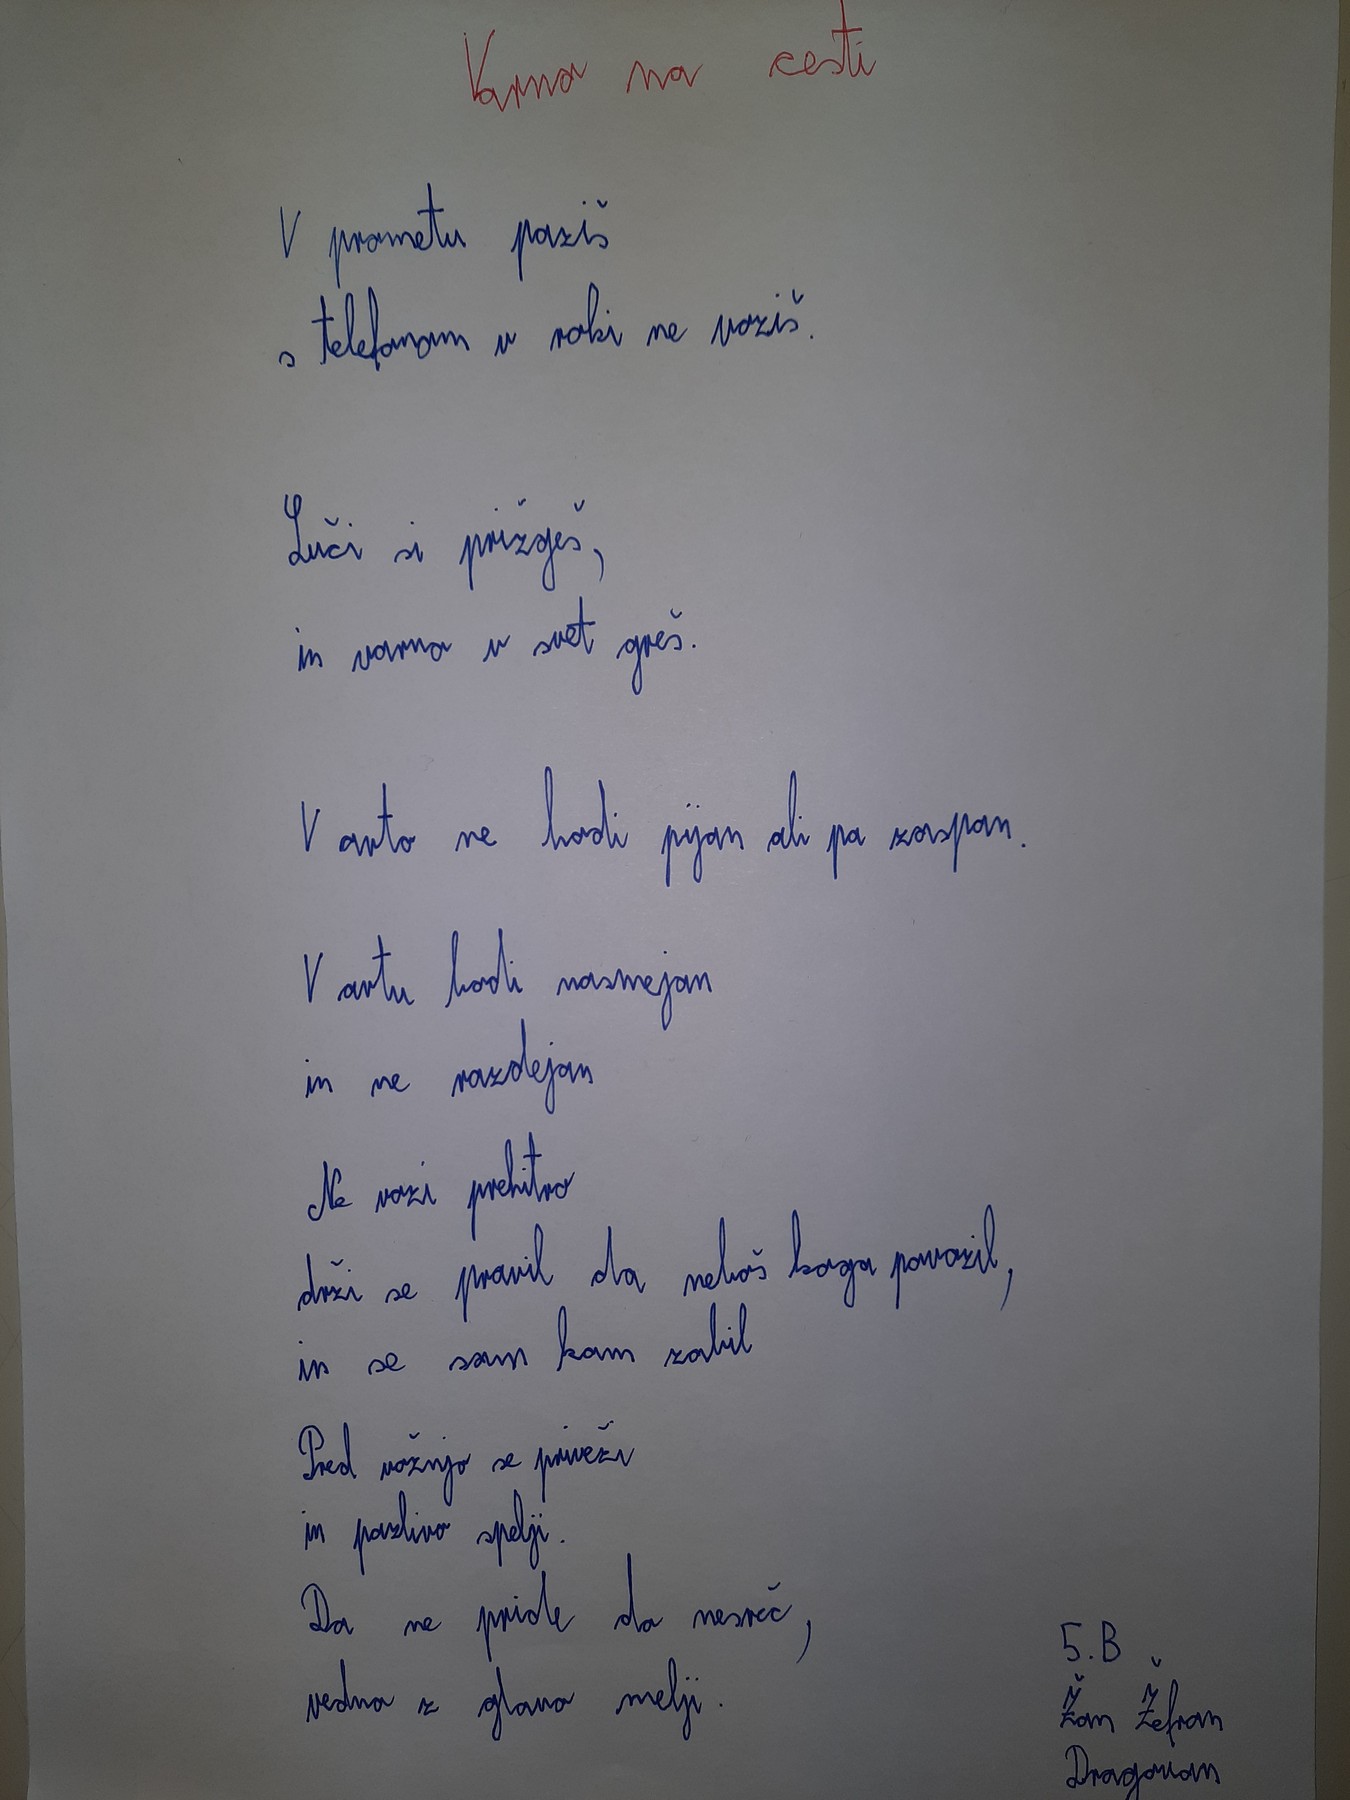 Varno na cesti
V prometu paziš
s telefonom v roki ne voziš.
Luči si prižgeš,
in varno v svet greš.
V avto ne hodi pijan ali pa zaspan.
V avtu hodi nasmejan
in ne razdejan
Ne vozi prehitro
drži se pravil da neboš koga povozil,
in se sam kam zabil
Pred vožnjo se priveži
in pazlivo spelji.
Da ne pride do nesreč,
vedno z glavo melji.
5.B
Žan Žefran
Dragovan